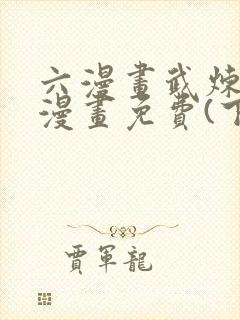 六漫畫武煉
漫畫免費(下
賈軍龍